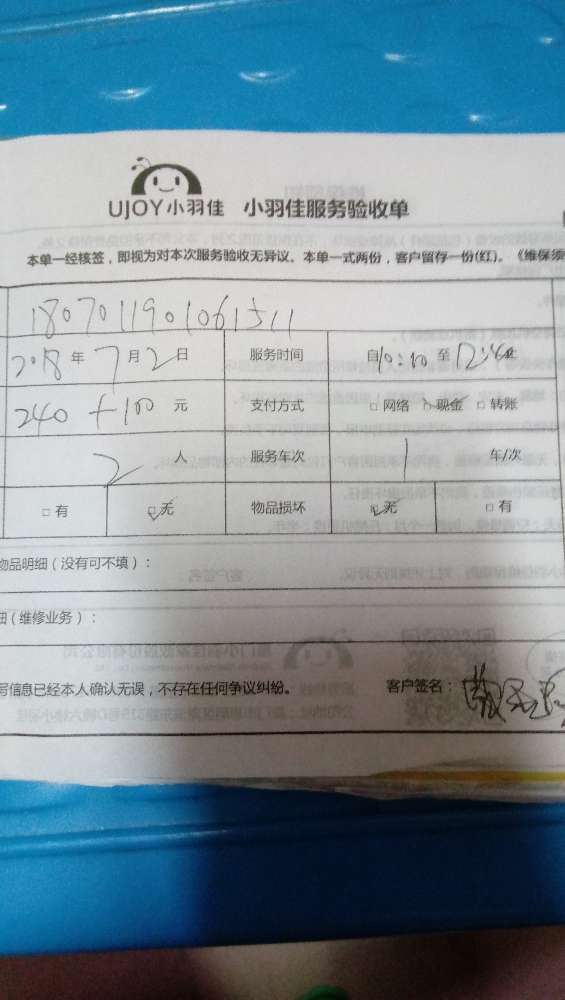 UJOY小羽佳 小羽佳服务验收单
本单一经核签，即视为对本次服务验收无异议。本单一式两份，客户留存一份(红)。《维保须
1807011901061511
2018 年 7 月 2 日 服务时间 自10:00 至 12:40止
240 + 100 元 支付方式 □ 网络 ☑ 现金 □ 转账
2 人 服务车次 1 车/次
□ 有 ☑ 无 物品损坏 ☑ 无 □ 有
物品明细（没有可不填）：
细（维修业务）：
写信息已经本人确认无误，不存在任何争议纠纷。 客户签名：